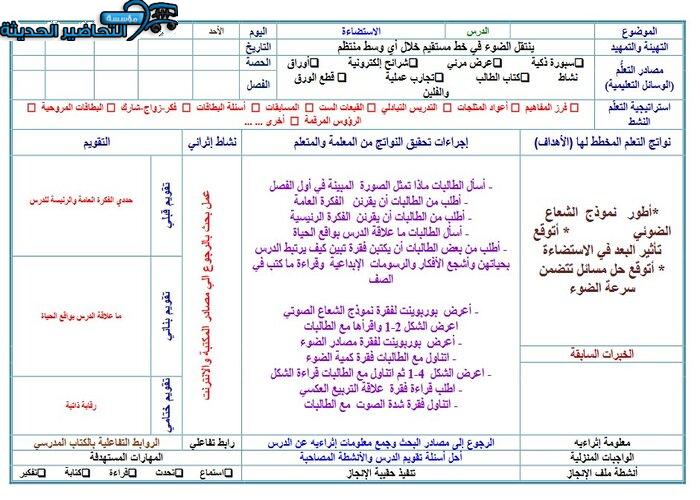 مؤسسة
التحاضير الحديثة
الموضوع الدرس الاستضاءة اليوم الأحد
التهيئة والتمهيد ينتقل الضوء في خط مستقيم خلال أي وسط منتظم التاريخ
مصادر التعلُّم (الوسائل التعليمية)
سبورة ذكية عرض مرئي شرائح إلكترونية أوراق
نشاط كتاب الطالب تجارب عملية قطع الورق
والفلين
الحصة
الفصل
استراتيجية التعلُّم النشط
فرز المفاهيم أعواد المثلجات التدريس التبادلي القبعات الست المسابقات أسئلة البطاقات فكر-زواج-شارك البطاقات المروحية
الرؤوس المرقمة أخرى ... ...
نواتج التعلم المخطط لها (الأهداف) إجراءات تحقيق النواتج من المعلمة والمتعلم نشاط إثرائي التقويم
*أطور نموذج الشعاع
الضوئي * أتوقع
تأثير البعد في الاستضاءة
* أتوقع حل مسائل تتضمن
سرعة الضوء
الخبرات السابقة
- أسأل الطالبات ماذا تمثل الصورة المبينة في أول الفصل
- أطلب من الطالبات أن يقرئن الفكرة العامة
- أطلب من الطالبات أن يقرئن الفكرة الرئيسية
- أسأل الطالبات ما علاقة الدرس بواقع الحياة
- أطلب من بعض الطالبات أن يكتبن فقرة تبين كيف يرتبط الدرس
بحياتهن وأشجع الأفكار والرسومات الإبداعية وقراءة ما كتب في
الصف
- أعرض بوربوينت لفقرة نموذج الشعاع الصوتي
اعرض الشكل 2-1 واقرأها مع الطالبات
- أعرض بوربوينت لفقرة مصادر الضوء
- اتناول مع الطالبات فقرة كمية الضوء
- اعرض الشكل 4-1 ثم اتناول مع الطالبات قراءة الشكل
- اطلب قراءة فقرة علاقة التربيع العكسي
- اتناول فقرة شدة الصوت مع الطالبات
عمل بحث بالرجوع الي مصادر المكتبة والانترنت
تقويم قبلي
حددي الفكرة العامة والرئيسة للدرس
تقويم بنائي
ما علاقة الدرس بواقع الحياة
تقويم ختامي
رقابة ذاتية
معلومة إثراءيه الرجوع إلى مصادر البحث وجمع معلومات إثراءيه عن الدرس رابط تفاعلي الروابط التفاعلية بالكتاب المدرسي
الواجبات المنزلية أحل أسئلة تقويم الدرس والأنشطة المصاحبة المهارات المستهدفة
أنشطة ملف الإنجاز تنفيذ حقيبة الإنجاز استماع تحدث قراءة كتابة تفكير